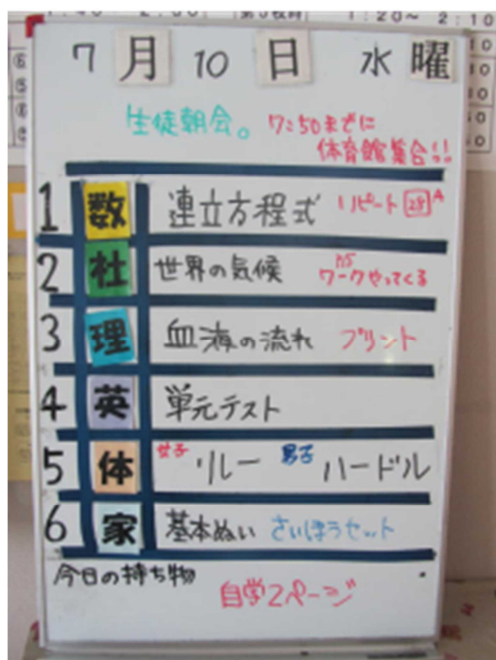 1:20～ 2:10
7月10日 水曜
生徒朝会。 7:50までに
体育館集合!!
1 数 連立方程式 リピート 28 A
2 社 世界の気候 ワークやってくる
3 理 血液の流れ プリント
4 英 単元テスト
5 体 女子 リレー 男子 ハードル
6 家 基本ぬい さいほうセット
今日の持ち物
自学2ページ